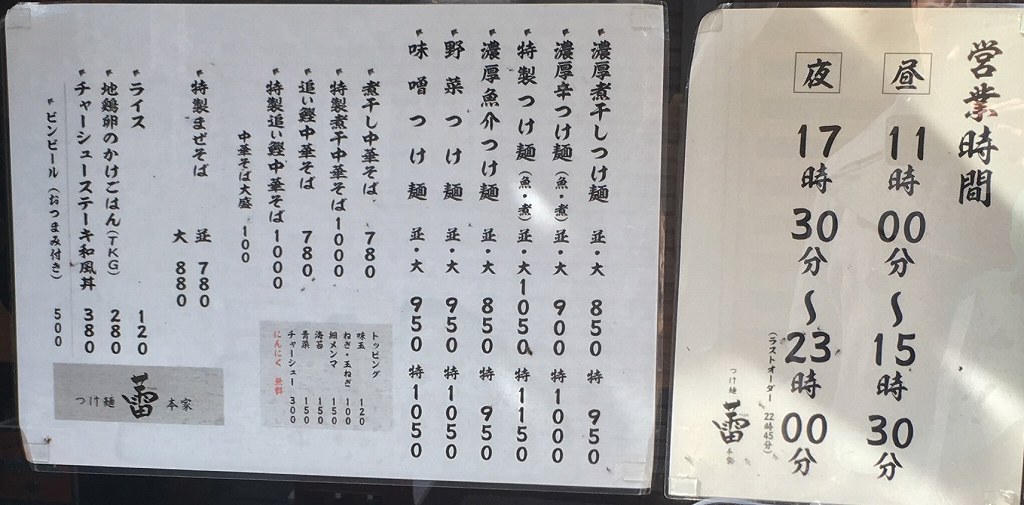 営業時間
昼 11時00分～15時30分
夜 17時30分～23時00分
(ラストオーダー 22時45分)
つけ麺 蕾 本家
濃厚煮干しつけ麺 並・大 850 特 950
濃厚辛つけ麺(魚・煮) 並・大 900 特 1000
特製つけ麺(魚・煮) 並・大 1050 特 1150
濃厚魚介つけ麺 並・大 850 特 950
野菜つけ麺 並・大 950 特 1050
味噌つけ麺 並・大 950 特 1050
煮干し中華そば 780
特製煮干中華そば 1000
追い鰹中華そば 780
特製追い鰹中華そば 1000
中華そば大盛 100
トッピング
味玉 120
ねぎ・玉ねぎ 100
細メンマ 150
海苔 150
青菜 150
チャーシュー 300
にんにく 無料
特製まぜそば 並 780
大 880
ライス 120
地鶏卵のかけごはん(TKG) 280
チャーシューステーキ和風丼 380
ビンビール(おつまみ付き) 500
つけ麺 蕾 本家